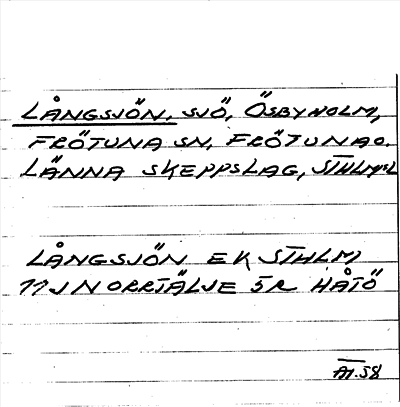 LÅNGSJÖN, SJÖ, ÖSBYHOLM,
FRÖTUNA SN, FRÖTUNA O.
LÄNNA SKEPPSLAG, STHLMS L
LÅNGSJÖN EK STHLM
11J NORRTÄLJE 5R HÅTÖ